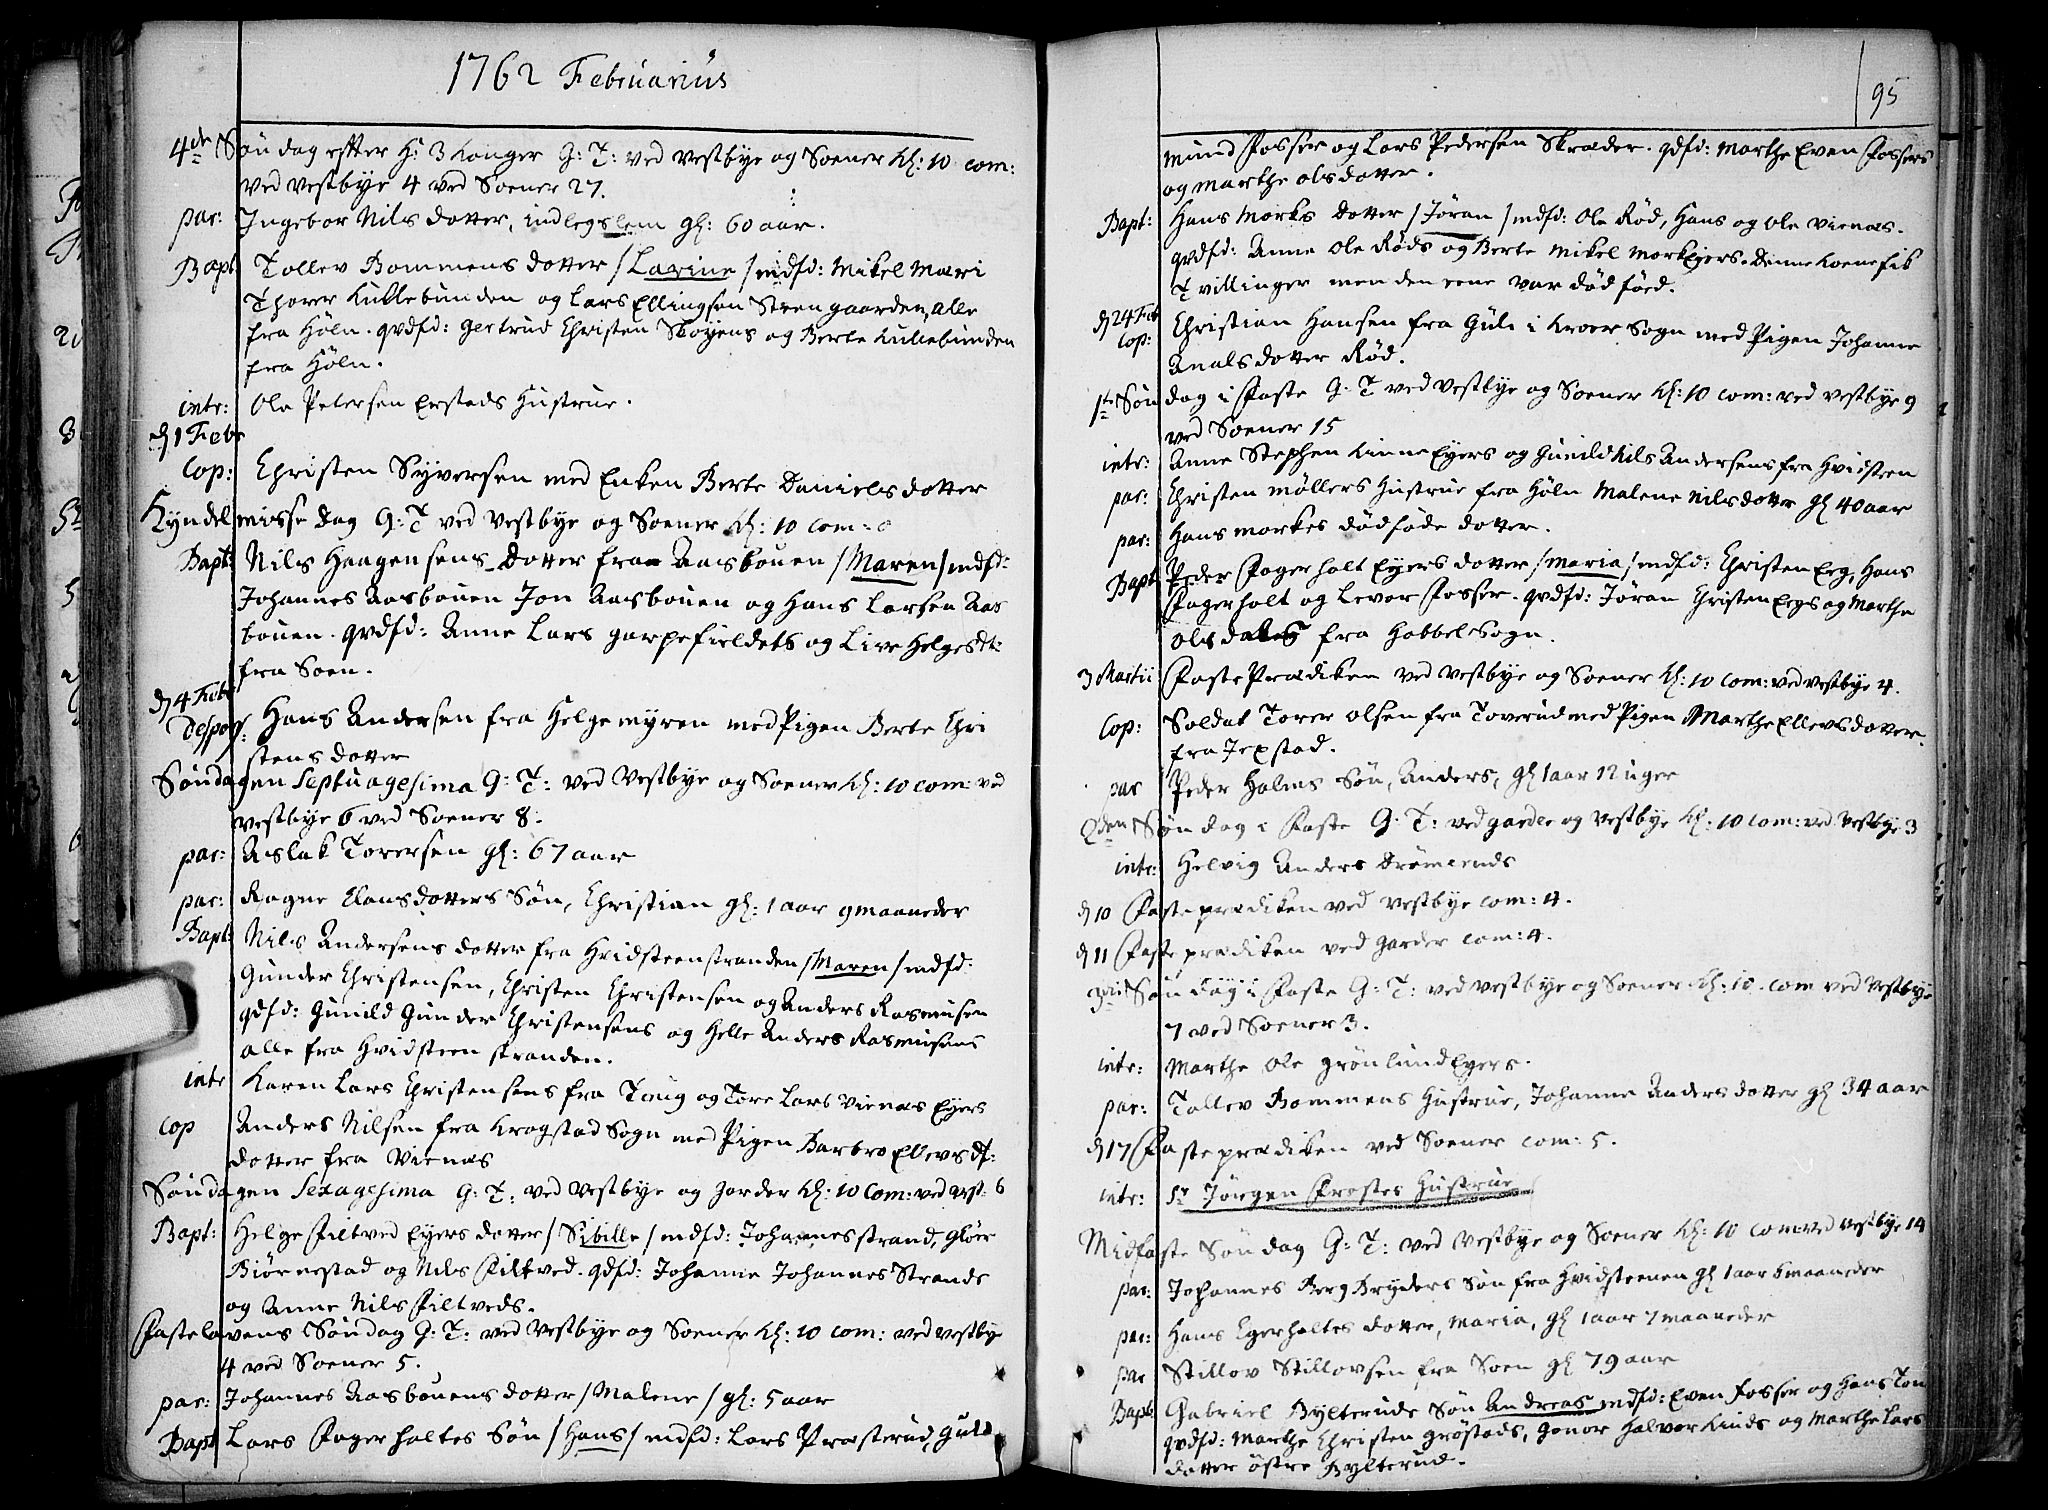 1762 Februarius
4de Søndag efter H: 3 Konger G: T: ved Vestbye og Soener Kl: 10 com:
ved Vestbye 4 ved Soener 27.
par: Ingebor Nils dotter, indlegslem gl: 60 aar.
Bapt Tollev Bommens dotter / Larine / mdfd: Mikel Mari
Thorer Kullebunden og Lars Ellingsen Steengaarden, alle
fra Høln. qvdfd: Gertrud Christen Skoyens og Berte Kullebunden
fra Høln.
intr: Ole Petersen Erstads Hustrue.
d 1 Febr
Cop: Christen Syversen med Enken Berte Daniels dotter
Kyndelmisse dag G: T ved Vestbye og Soener Kl: 10 com: 0
Bapt: Nils Haagensens dotter fra Aasbouen / Maren / mdfd:
Johannes Aasbouen Jon Aasbouen og Hans Larsen Aas
bouen. qvdfd: Anne Lars garpefieldets og Live Helgesdt:
fra Soen.
d 4 Febr
Despon: Hans Andersen fra Helgemyren med Pigen Berte Chri
stens dotter
Søndagen Septuagesima G: T: ved Vestbye og Soener Kl: 10 com: ved
Vestbye 6 ved Soener 8.
par: Aslak Torersen gl: 67 aar
par: Ragne Clausdotters Søn, Christian gl: 1 aar 9 maaneder
Bapt: Nils Andersens dotter fra Hvidsteenstranden / Maren / mdfd:
Gunder Christensen, Christen Christensen og Anders Rasmusen
qdfd: Gunild Gunder Christensens og Helle Anders Rasmusens
alle fra Hvidsteen stranden.
intr Karen Lars Christensens fra Toug og Tore Lars Vienas Eyers
cop Anders Nilsen fra Krogstad Sogn med Pigen Barbro Ellevsdt:
dotter fra Vienas
Søndagen Sexagesima G: T: ved Vestbye og Garder Kl: 10 Com: ved vest: 6
Bapt: Helge Filtved Eyers dotter / Sibille / mdfd: Johannes Strand, Gloer
Biørnestad og Nils Filtved. qdfd: Johanne Johannes Strands
og Anne Nils Filtveds.
Fastelavens Søndag G: T: ved Vestbye og Soener Kl: 10 com: ved Vestbye
4 ved Soener 5.
par: Johannes Aasbouens dotter / Malene / gl: 5 aar
Bapt Lars Fagerholtes Søn / Hans / mdfd: Lars Præsterud, Guld
95
mund Fosser og Lars Pedersen Skræder. qdfd: Marthe Even Fossers
og Marthe olsdotter.
Bapt: Hans Morks dotter / Jøran / mdfd: Ole Rød, Hans og Ole Vienas.
qvdfd: Anne Ole Røds og Berte Mikel Mork Eyers. Denne Koene fik
Tvillinger men den eene var død føed.
d 24 Feb
Cop: Christian Hansen fra Gule i Kroer Sogn med Pigen Johanne
Analsdotter Rød.
1te Søndag i Faste G: T ved Vestbye og Soener Kl: 10 com: ved Vestbye 9
ved Soener 15
intr: Anne Stephen Kinne Eyers og Gunild Nils Andersens fra Hvidsteen
par: Christen Møllers Hustrue fra Høln Malene Nilsdotter gl 40 aar
par: Hans Morkes dødføde dotter.
Bapt Peder Fagerholt Eyers dotter / Maria / mdfd: Christen Erg, Hans
Fagerholt og Levor Fosser. qvdfd: Jøran Christen Ergs og Marthe
ols fra Hobbel Sogn.
3 Martii Faste Prædiken ved Vestbye og Soener Kl: 10 com: ved Vestbye 4.
Cop: Soldat Torer Olsen fra Toverud med Pigen Marthe Ellevsdotter
fra Jepstad.
par Peder Holms Søn, Anders, gl 1 aar 12 uger
2den Søndag i Faste G: T: ved Garder og Vestbye Kl: 10 com: ved Vestbye 3
intr: Helvig Anders Drømtends
d 10 Faste prædiken ved Vestbye com: 4.
d 11 Faste prædiken ved Garder com: 4.
3die Søndag i Faste G: T: ved Vestbye og Soener Kl: 10. com ved Vestbye
7 ved Soener 3.
intr: Marthe Ole Grønlund Eyers.
par: Tollev Bommens Hustrue, Johanne Andersdotter gl 34 aar
d 17 Faste prædiken ved Soener com: 5.
intr: Sr Jørgen Frostes Hustrue
Midfaste Søndag G: T: ved Vestbye og Soener Kl: 10 com: ved Vestbye 14
par: Johannes Berg Bryders Søn fra Hvidsteenen gl 1 aar 6 maaneder
par: Hans Egerholtes dotter, Maria, gl 1 aar 7 maaneder
par Stillov Stillovsen fra Soen gl 79 aar
Bapt: Gabriel Bylteruds Søn Andreas mdfd: Even Fosser og Hans Ton
qvdfd: Marthe Christen Grøstads, Gonor Halvor Kinds og Marthe Lars
dotter østre Bylterud.